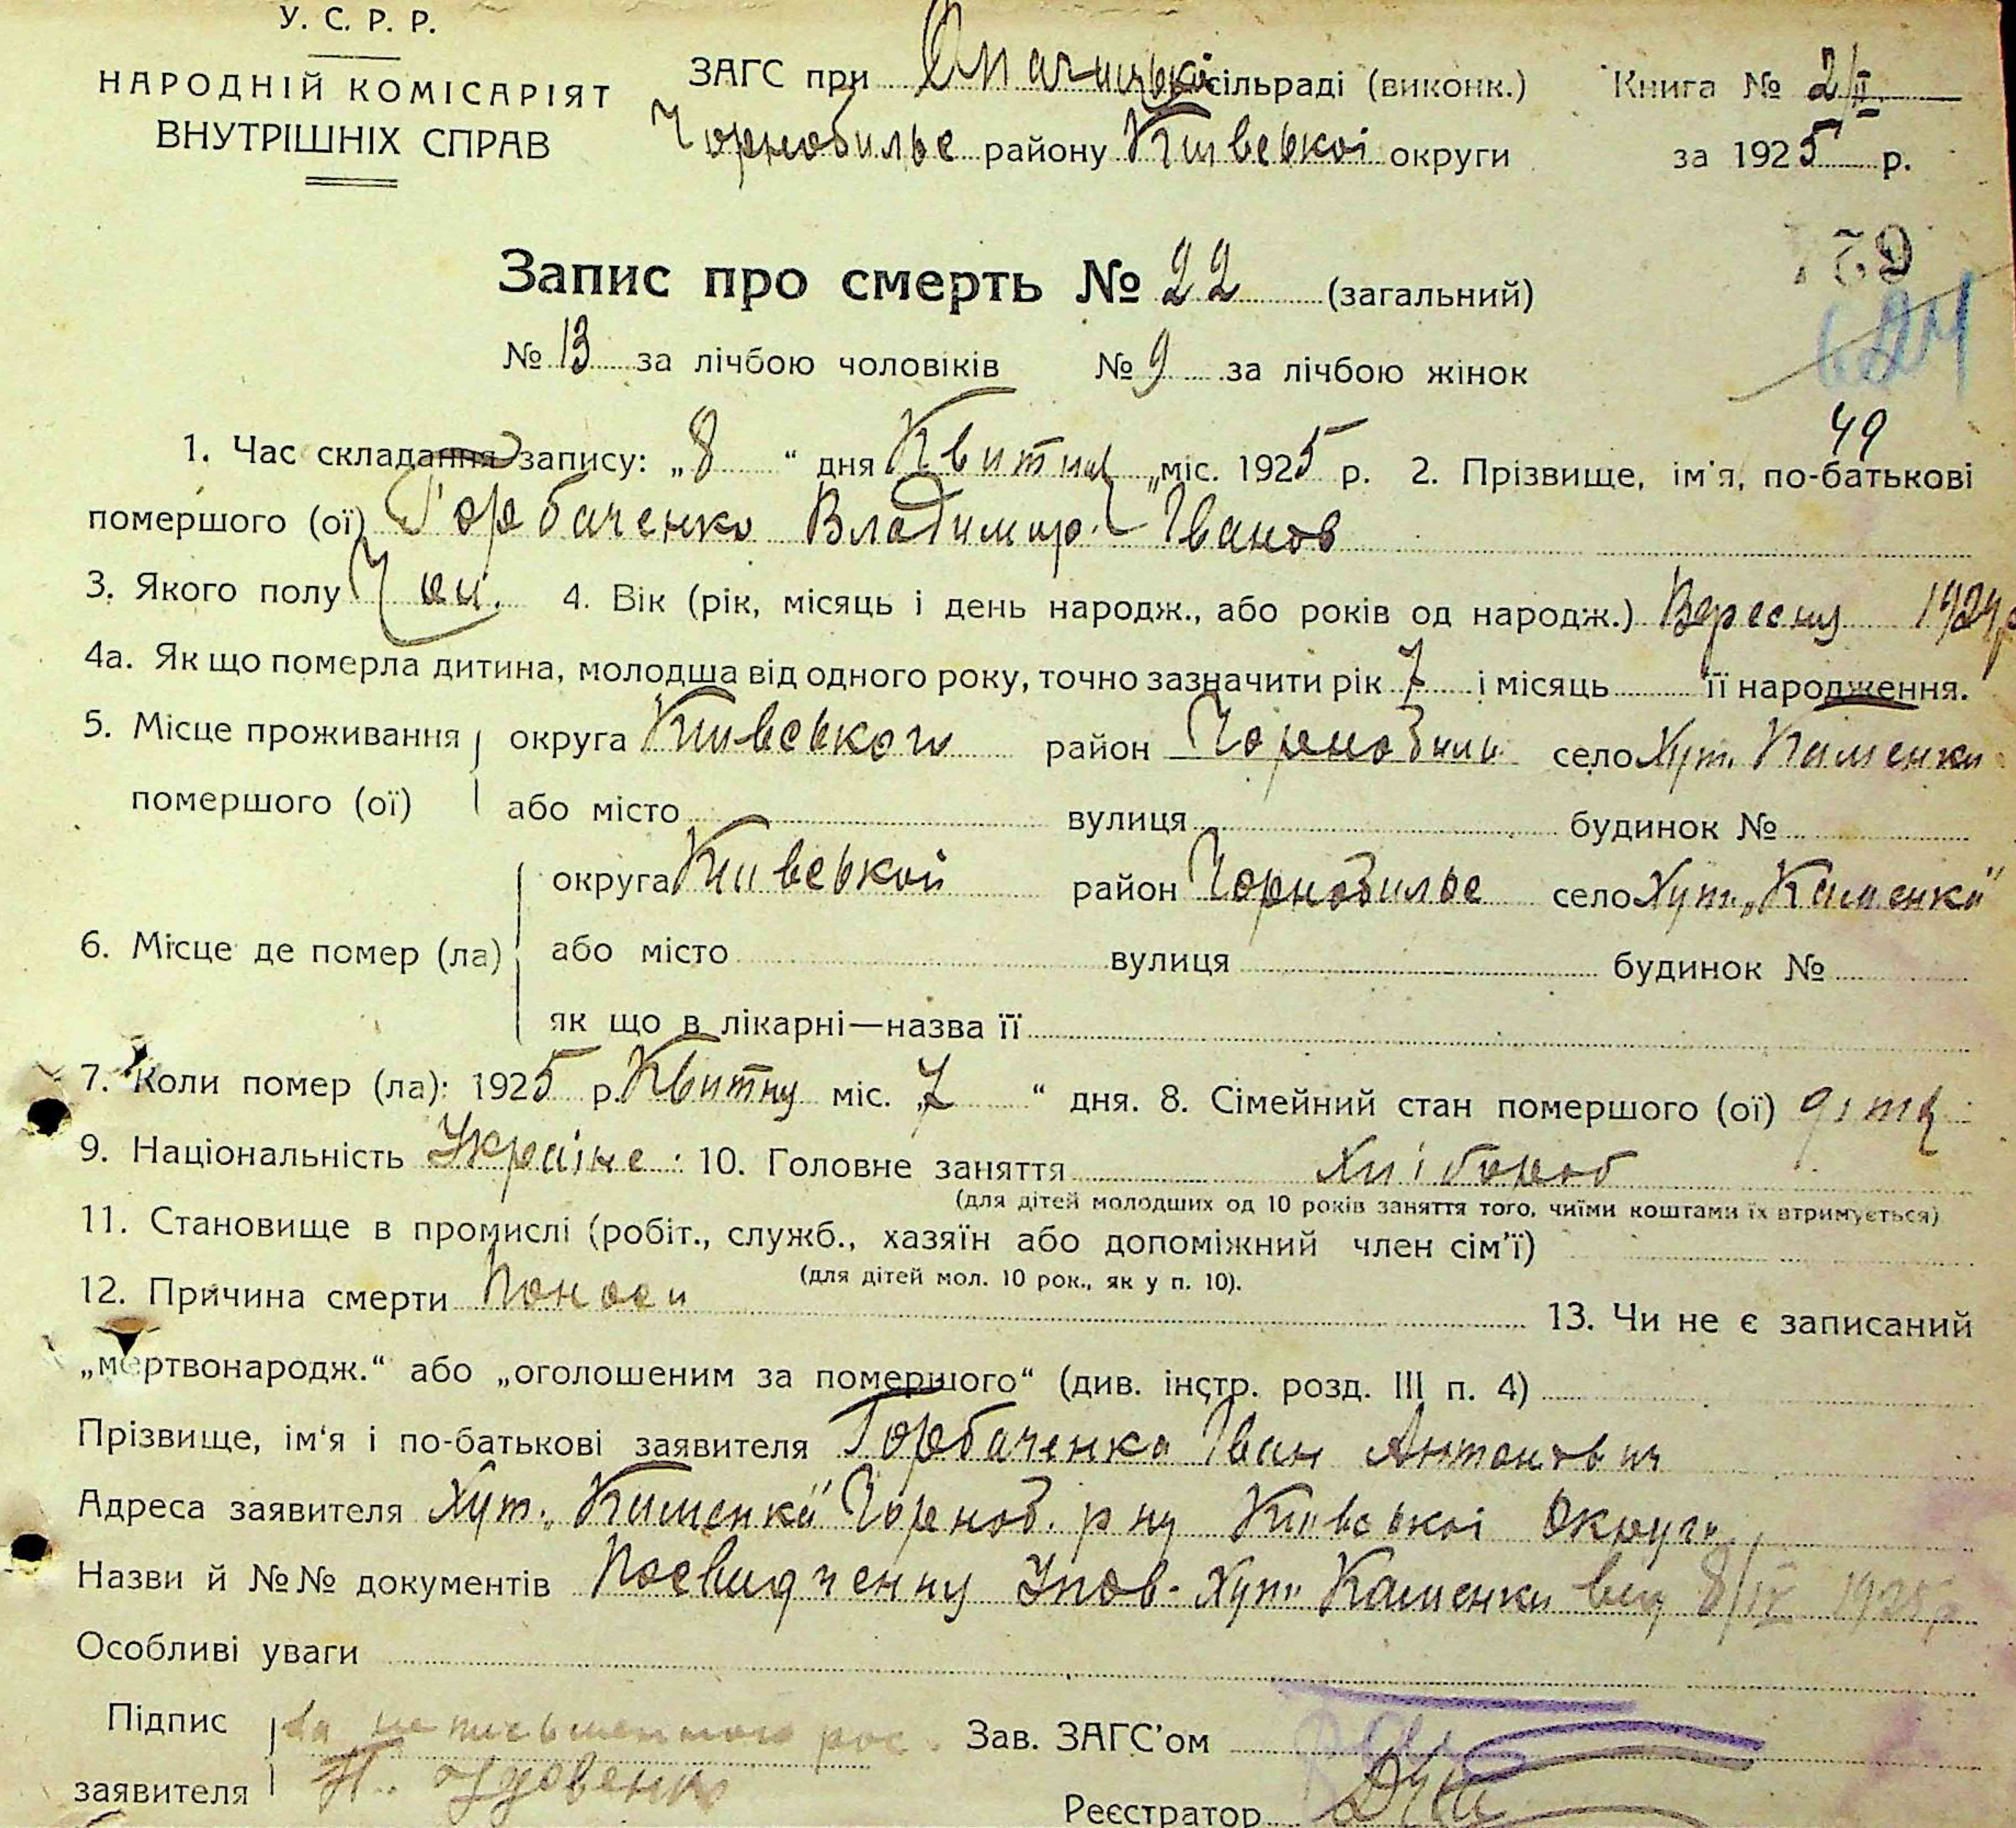 У. С. Р. Р.
НАРОДНІЙ КОМІСАРІЯТ
ВНУТРІШНІХ СПРАВ
ЗАГС при Опачицькі сільраді (виконк.)
Чорнобильс району Київської округи
Книга № 2/II
за 1925 р.
Запис про смерть № 22 (загальний)
№ 13 за лічбою чоловіків № 9 за лічбою жінок
49
1. Час складання запису: „8 “ дня Квитня „міс. 1925 р. 2. Прізвище, ім'я, по-батькові
помершого (ої) Горбаченко Владимир Іванов
3. Якого полу Чол. 4. Вік (рік, місяць і день народж., або років од народж.) Вересня 1924р
4а. Як що померла дитина, молодша від одного року, точно зазначити рік 7 і місяць її народження.
5. Місце проживання помершого (ої) округа Київського район Чорнобиль село Хут. Каменка
або місто вулиця будинок №
6. Місце де помер (ла) округа Київськой район Чорнобильс село Хут. „Каменка"
або місто вулиця будинок №
як що в лікарні—назва її
7. Коли помер (ла): 1925 р. Квитня міс. „7 “ дня. 8. Сімейний стан помершого (ої) дитя
9. Національність Українс. 10. Головне заняття Хлібороб
(для дітей молодших од 10 років заняття того, чиїми коштами їх втримується)
11. Становище в промислі (робіт., служб., хазяїн або допоміжний член сім'ї)
(для дітей мол. 10 рок., як у п. 10).
12. Причина смерти Поноси 13. Чи не є записаний
„мертвонародж.“ або „оголошеним за помершого“ (див. інстр. розд. III п. 4)
Прізвище, ім'я і по-батькові заявителя Горбаченко Іван Антонович
Адреса заявителя Хут. „Каменка" Чорноб. р ну Київської Округи
Назви й №№ документів Посвидчення Упов. Хут. Каменки вид 8/IV 1925р
Особливі уваги
Підпис заявителя За неписьменного рос.
Зав. ЗАГС'ом
Реєстратор